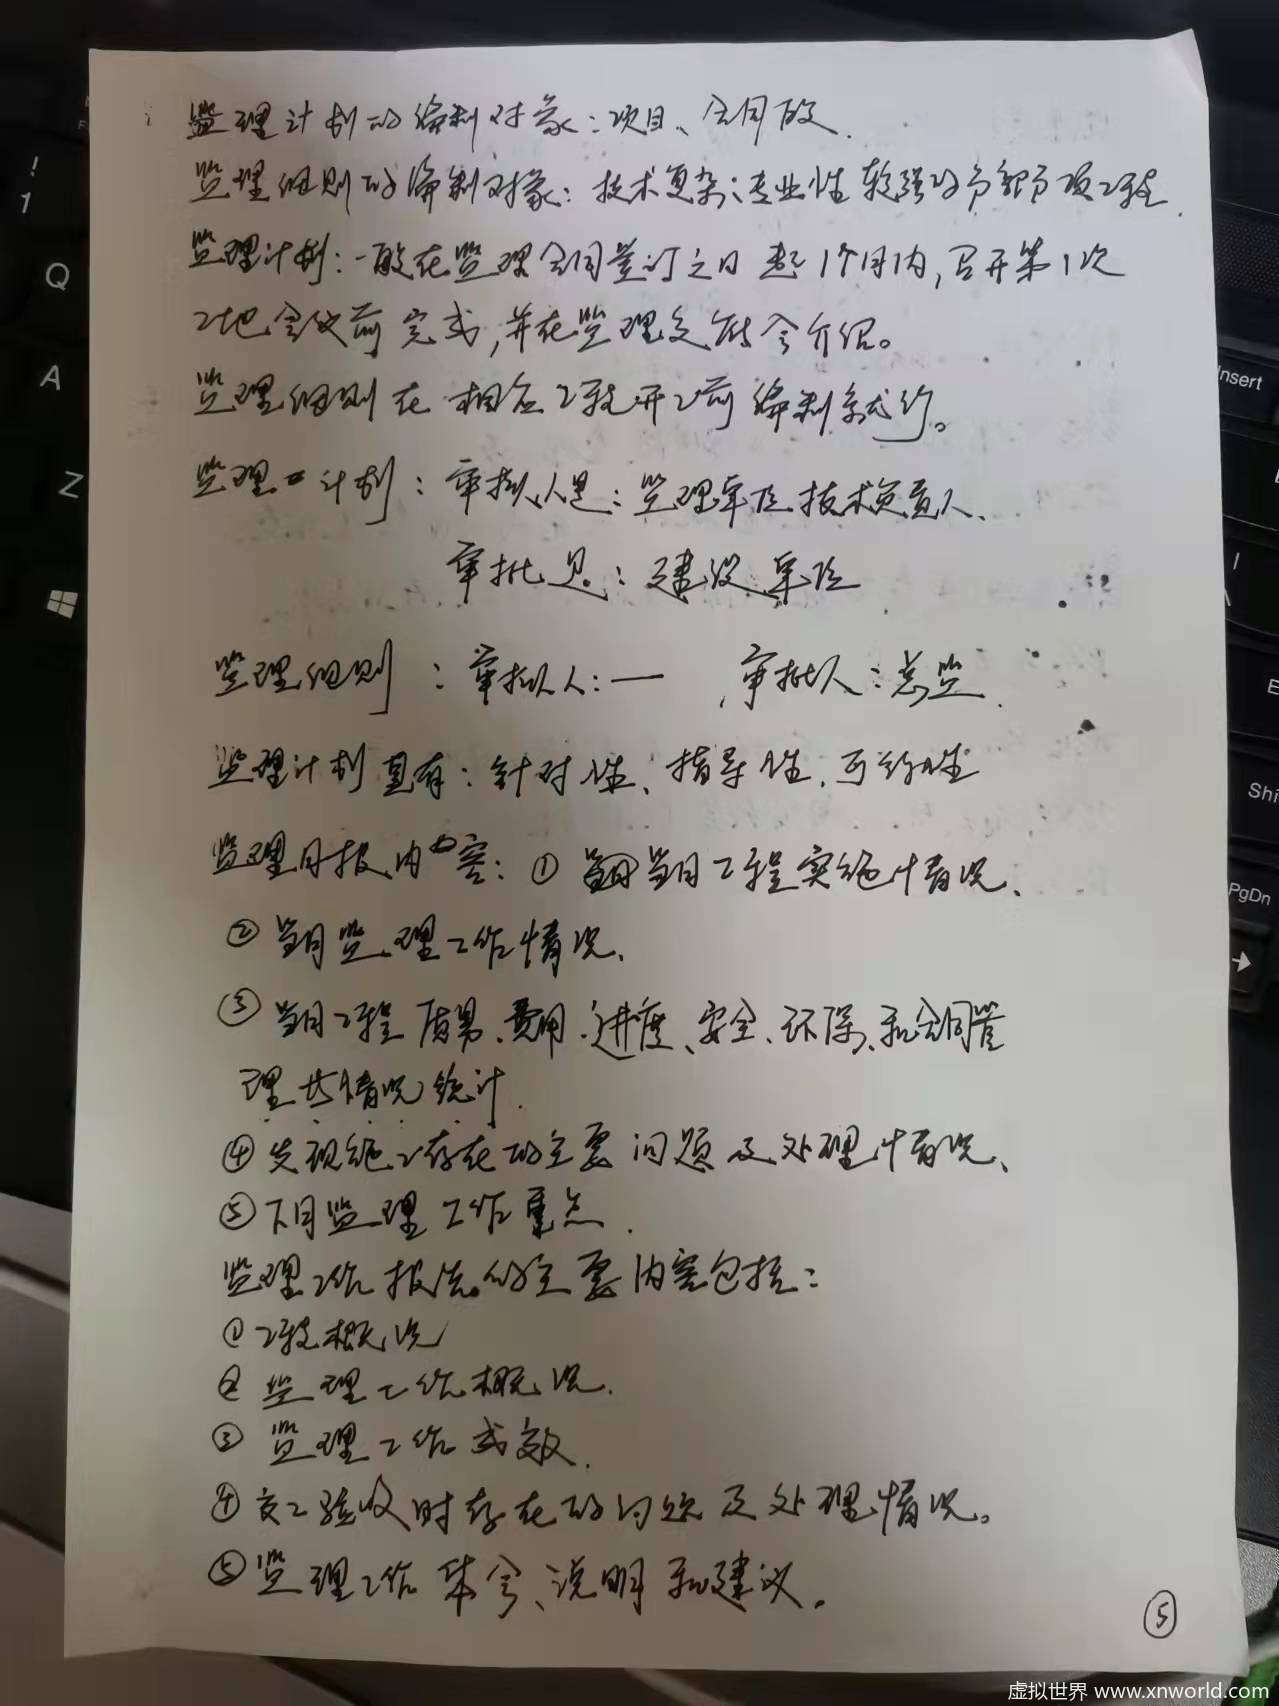 监理计划的编制对象：项目、合同段.
监理细则的编制对象：技术复杂、专业性较强的分部分项工程.
监理计划：一般在监理合同签订之日起1个月内，召开第1次
工地会议前完成，并在监理交底会介绍。
监理细则在相应工程开工前编制就行。
监理计划：审核人是：监理单位技术负责人、
审批是：建设单位
监理细则：审核人：— 审批人：总监.
监理计划具有：针对性、指导性、可行性
监理月报内容：① 当月工程实施情况、
② 当月监理工作情况、
③ 当月工程质量、费用、进度、安全、环保、和合同管
理其情况统计.
④ 发现施工存在的主要问题及处理情况、
⑤ 下月监理工作重点.
监理工作报告的主要内容包括：
① 工程概况
② 监理工作概况.
③ 监理工作成效.
④ 交工验收时存在的问题及处理情况。
⑤ 监理工作体会、说明和建议。
⑤
! 1
Q
A
Z
Insert
Shi
PgDn
虚拟世界 www.xnworld.com